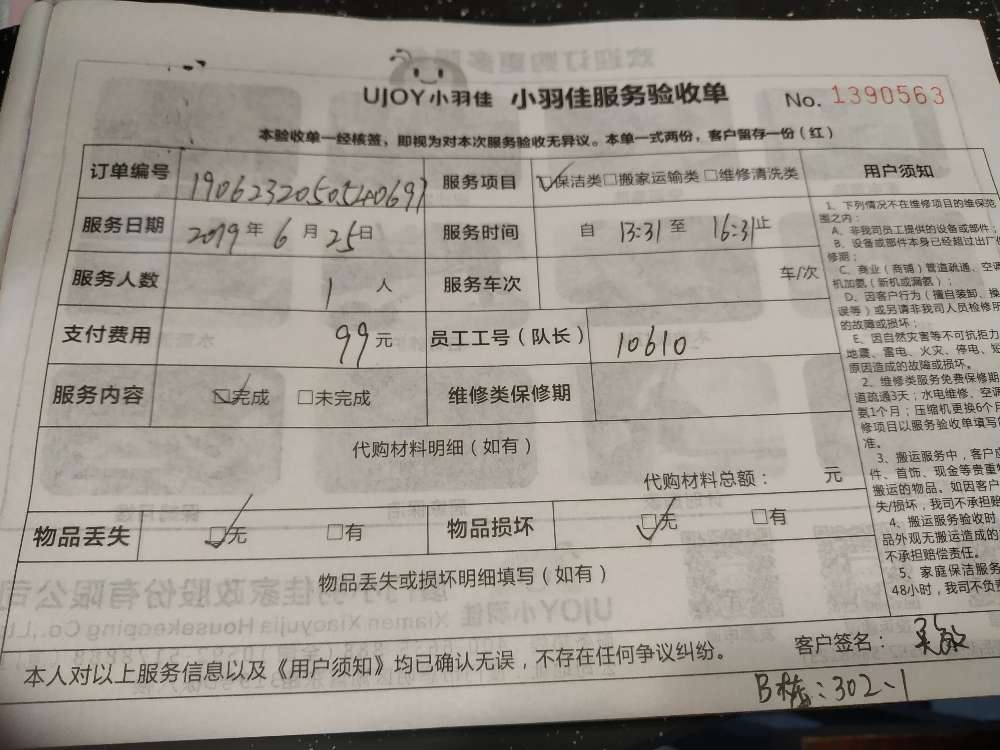 UJOY小羽佳 小羽佳服务验收单 No. 1390563
本验收单一经核签，即视为对本次服务验收无异议。本单一式两份，客户留存一份（红）
订单编号 190623205054069 服务项目 ☑保洁类□搬家运输类□维修清洗类 用户须知
服务日期 2019年6月25日 服务时间 自 13:31 至 16:31止
服务人数 1 人 服务车次 车/次
支付费用 99元 员工工号（队长） 10610
服务内容 ☑完成 □未完成 维修类保修期
代购材料明细（如有）
代购材料总额： 元
物品丢失 ☑无 □有 物品损坏 ☑无 □有
物品丢失或损坏明细填写（如有）
本人对以上服务信息以及《用户须知》均已确认无误，不存在任何争议纠纷。
客户签名：吴
B栋：302-1
1、下列情况不在维修项目的维保范
围之内：
A、非我司员工提供的设备或部件；
B、设备或部件本身已经超过出厂
修期；
C、商业（商铺）管道疏通、空调
机加氨（新机或漏氨）；
D、因客户行为（擅自装卸、操
误等）或另请非我司人员检修所
的故障或损坏；
E、因自然灾害等不可抗拒力
地震、雷电、火灾、停电、短
原因造成的故障或损坏。
2、维修类服务免费保修期
道疏通3天；水电维修、空调
氨1个月；压缩机更换6个月
修项目以服务验收单填写的
准。
3、搬运服务中，客户应
件、首饰、现金等贵重物
搬运的物品。如因客户
失/损坏，我司不承担赔
4、搬运服务验收时
品外观无搬运造成的
不承担赔偿责任。
5、家庭保洁服务
48小时，我司不负责